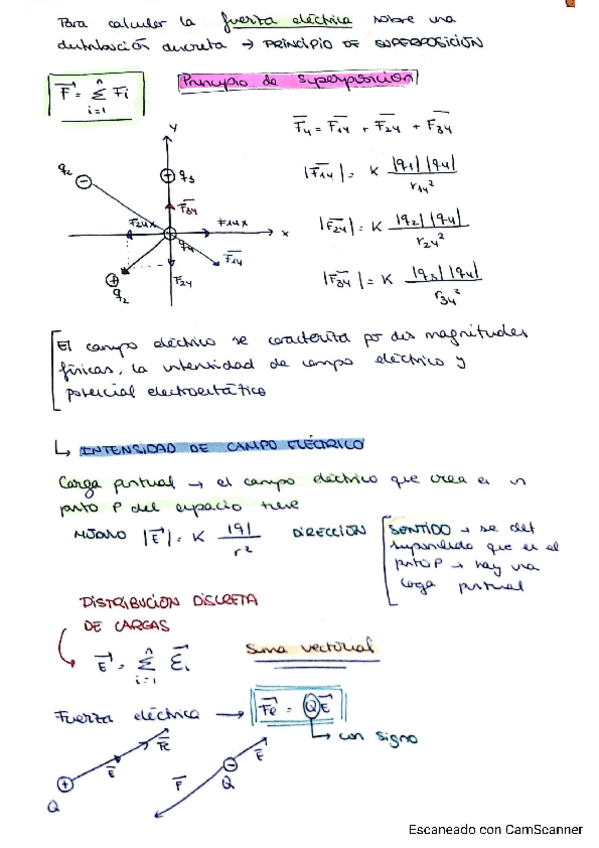 Para calcular la fuerza eléctrica sobre una
distribución discreta → PRINCIPIO DE SUPERPOSICIÓN
F = Σ Fi
n
i=1
Principio de superposición
F4 = F14 + F24 + F34
|F14| = K |q1| |q4| / r14²
|F24| = K |q2| |q4| / r24²
|F34| = K |q3| |q4| / r34²
y
q2
q3
F34
F24x
F14x
x
q4
F14
F24
q2
El campo eléctrico se caracteriza por dos magnitudes
físicas, la intensidad de campo eléctrico y
potencial electroestático
↳ INTENSIDAD DE CAMPO ELÉCTRICO
Carga puntual → el campo eléctrico que crea en un
punto P del espacio tiene
MÓDULO |E| = K |q| / r²
DIRECCIÓN
SENTIDO → se det
suponiendo que en el
punto P → hay una
carga puntual
DISTRIBUCIÓN DISCRETA
DE CARGAS
E = Σ Ei
n
i=1
Suma vectorial
Fuerza eléctrica → Fe = QE
↳ con signo
Fe
E
Q
E
F
Q
Escaneado con CamScanner